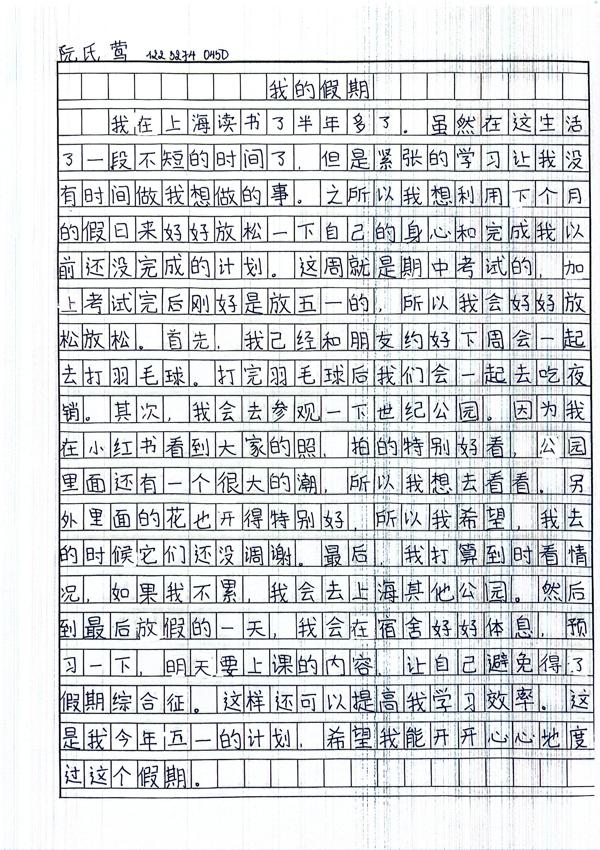 阮氏莺 122 3274 0450
我的假期
我在上海读书了半年多了。虽然在这生活
了一段不短的时间了，但是紧张的学习让我没
有时间做我想做的事。之所以我想利用下个月
的假日来好好放松一下自己的身心和完成我以
前还没完成的计划。这周就是期中考试的，加
上考试完后刚好是放五一的，所以我会好好放
松放松。首先，我已经和朋友约好下周会一起
去打羽毛球。打完羽毛球后我们会一起去吃夜
销。其次，我会去参观一下世纪公园。因为我
在小红书看到大家的照，拍的特别好看，公园
里面还有一个很大的潮，所以我想去看看。另
外里面的花也开得特别好，所以我希望，我去
的时候它们还没调谢。最后，我打算到时看情
况，如果我不累，我会去上海其他公园。然后
到最后放假的一天，我会在宿舍好好体息，预
习一下，明天要上课的内容，让自己避免得了
假期综合征。这样还可以提高我学习效率。这
是我今年五一的计划，希望我能开开心心地度
过这个假期。